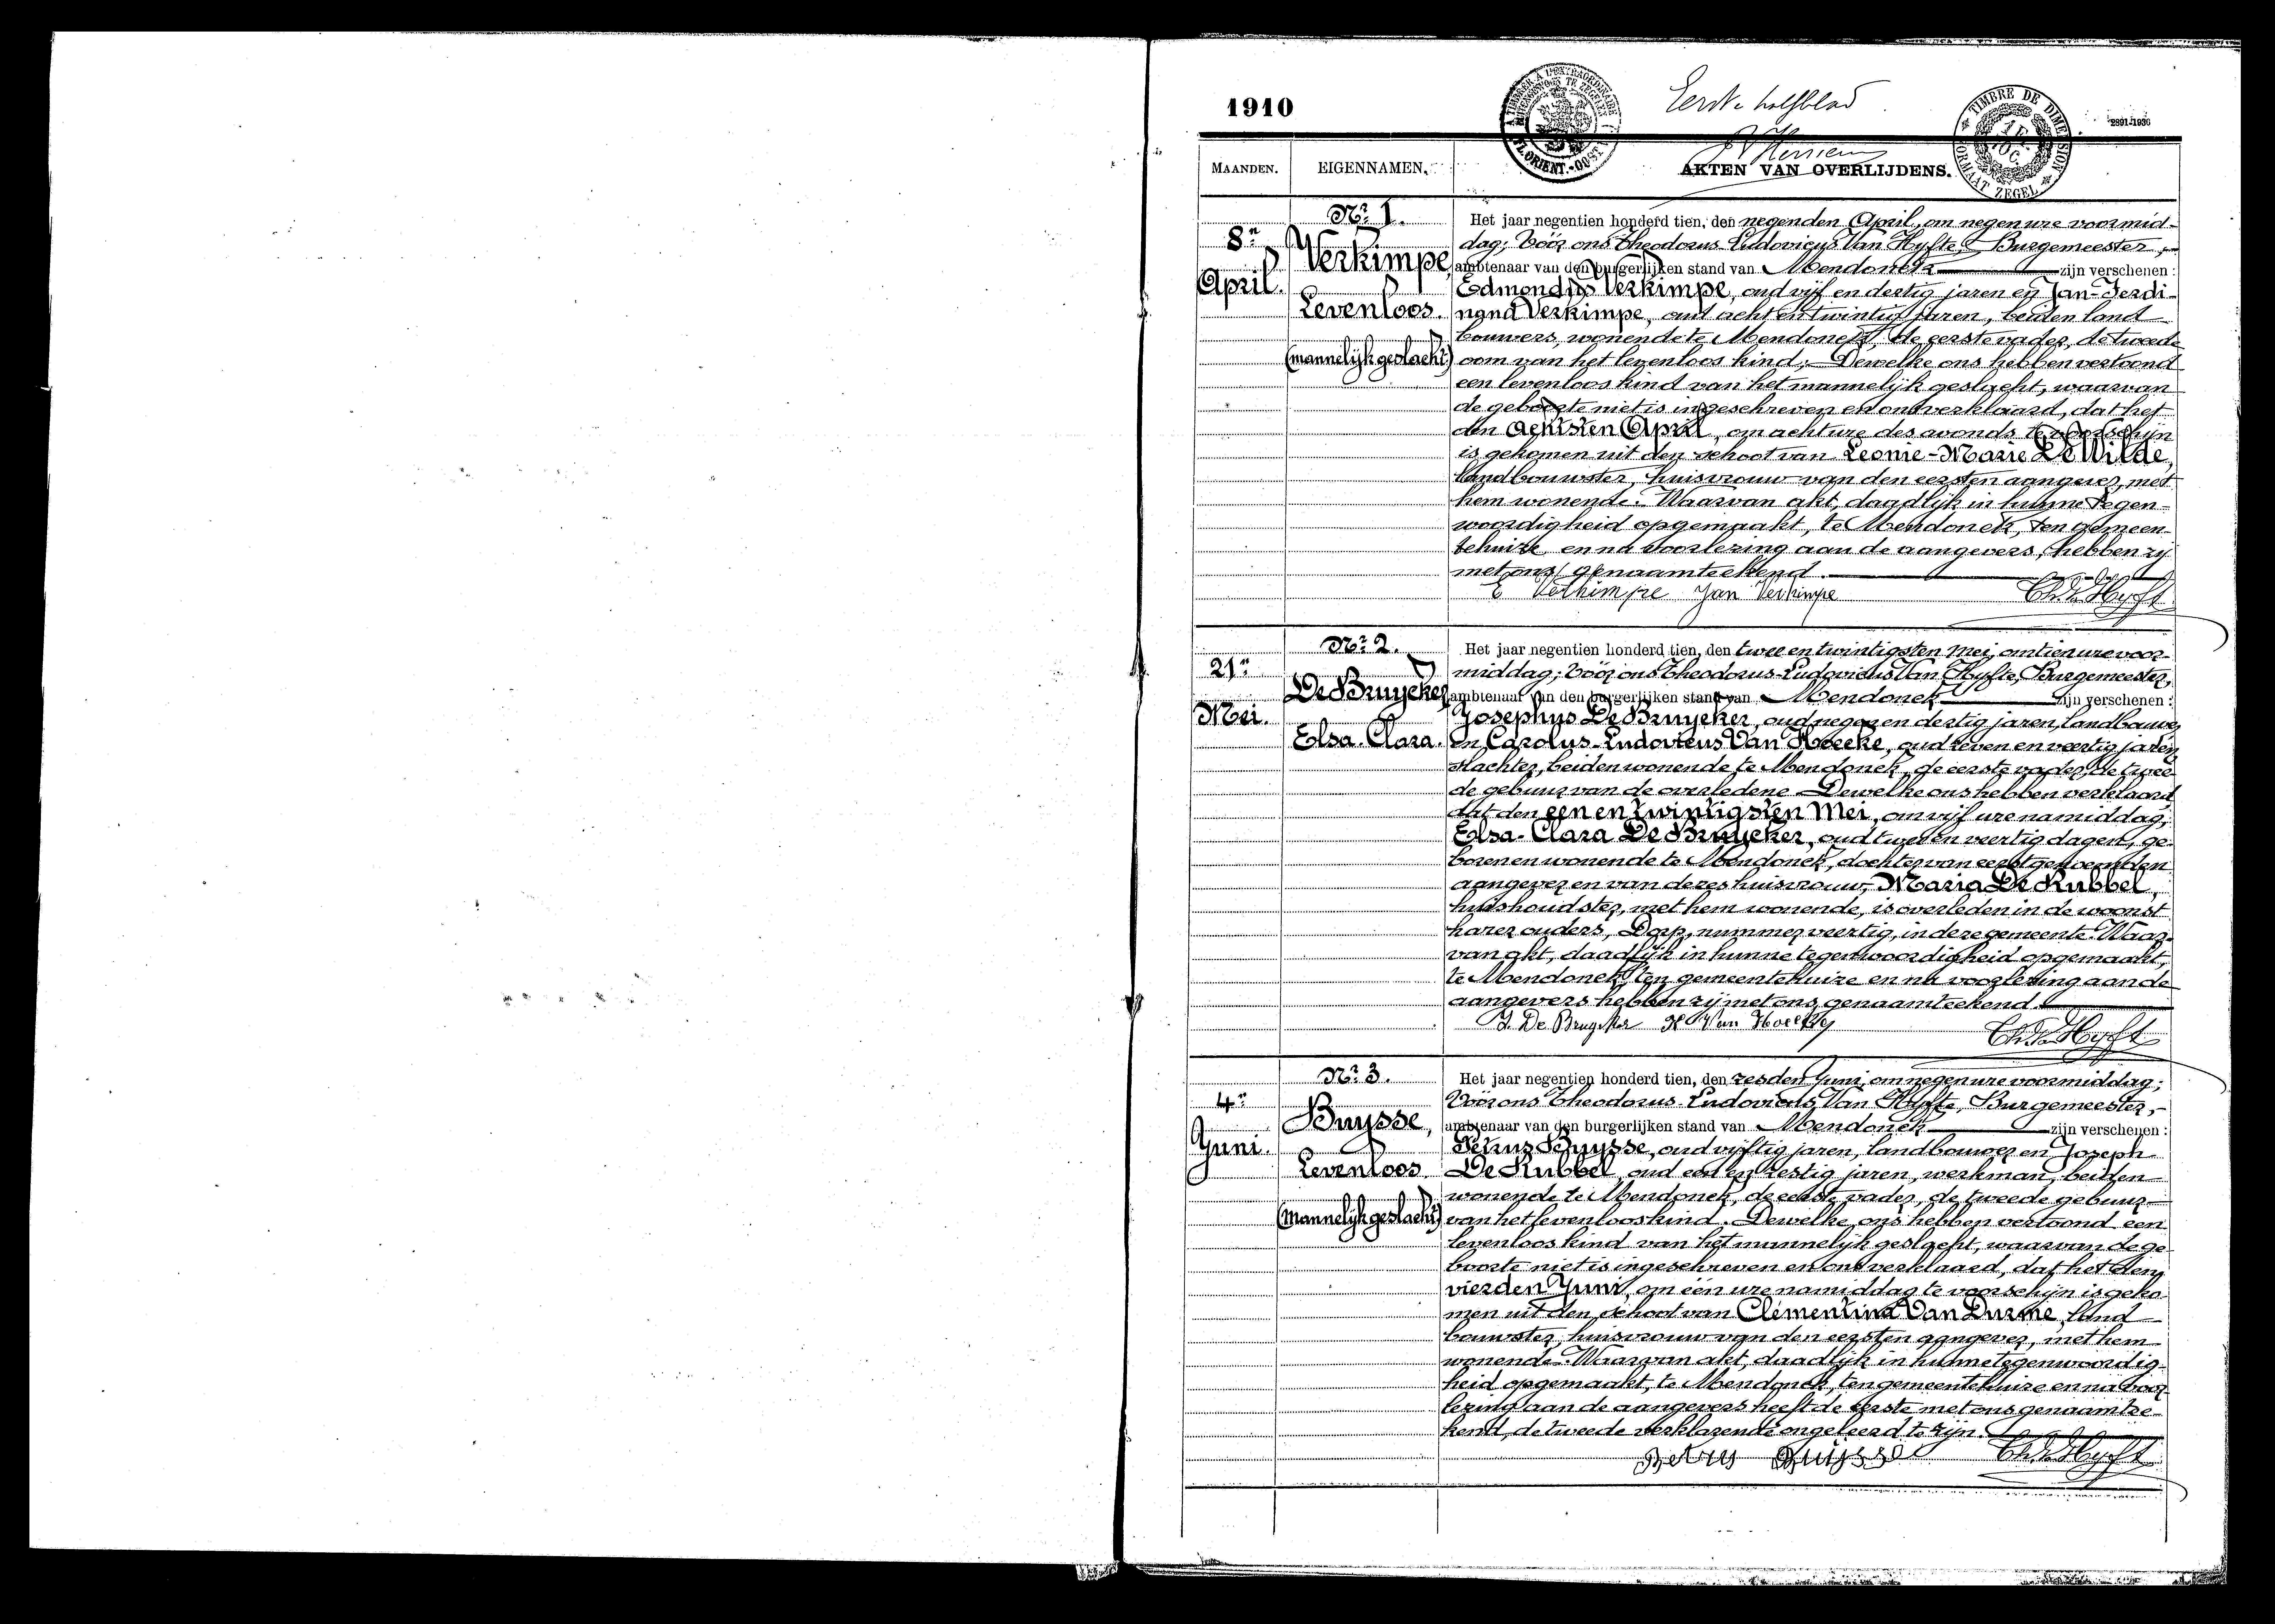 1910
Eerste halfblad
2891-1936
TIMBRE DE DIMENSION
FORMAAT ZEGEL
MAANDEN.
EIGENNAMEN.
AKTEN VAN OVERLIJDENS.
8n
April.
Nr 1.
Verkimpe,
Levenloos.
(mannelijk geslacht)
Het jaar negentien honderd tien, den negenden April, om negen ure voormid-
dag; Vóór ons Theodorus Ludovicus Van Hyfte, Burgemeester,
ambtenaar van den burgerlijken stand van Mendonck zijn verschenen :
Edmondus Verkimpe, oud vijf en dertig jaren en Jan-Ferdi-
nand Verkimpe, oud acht en twintig jaren, beiden land
bouwers, wonende te Mendonck, de eerste vader, de tweede
oom van het levenloos kind; Dewelke ons hebben vertoond
een levenloos kind van het mannelijk geslacht, waarvan
de geboorte niet is ingeschreven en ons verklaard, dat het
den achtsten April, om acht ure des avonds te voorschijn
is gekomen uit den schoot van Leonie-Marie De Wilde,
landbouwster, huisvrouw van den eersten aangever, met
hem wonende. Waarvan akt, daadlijk in hunne tegen-
woordigheid opgemaakt, te Mendonck, ten gemeen-
tehuize en na voorlezing aan de aangevers, hebben zij
met ons genaamteekend.
E Verkimpe Jan Verkimpe Th. Van Hyfte
21n
Mei.
Nr 2.
De Bruycker
Elsa-Clara.
Het jaar negentien honderd tien, den twee en twintigsten Mei, om tien ure voor-
middag; Vóór ons Theodorus-Ludovicus Van Hyfte, Burgemeester,
ambtenaar van den burgerlijken stand van Mendonck zijn verschenen :
Josephus De Bruycker, oud negen en dertig jaren, landbouwer
en Carolus-Ludovicus Van Hoecke, oud zeven en veertig jaren
slachter, beiden wonende te Mendonck, de eerste vader, de twee-
de gebuur van de overledene Dewelke ons hebben verklaard
dat den een en twintigsten Mei, om vijf ure namiddag,
Elsa-Clara De Bruycker, oud twee en veertig dagen, ge-
boren en wonende te Mendonck, dochter van eerstgenoemden
aangever en van dezes huisvrouw, Maria De Rubbel,
huishoudster, met hem wonende, is overleden in de woonst
harer ouders, Dorp, nummer veertig, in deze gemeente. Waar-
van akt, daadlijk in hunne tegenwoordigheid opgemaakt,
te Mendonck, ten gemeentehuize en na voorlezing aan de
aangevers hebben zij met ons genaamteekend.
J. De Bruycker K Van Hoecke Th. Van Hyfte
4n
Juni.
Nr 3.
Buysse,
Levenloos.
(mannelijk geslacht)
Het jaar negentien honderd tien, den zesden Juni, om negen ure voormiddag;
Vóór ons Theodorus-Ludovicus Van Hyfte, Burgemeester,-
ambtenaar van den burgerlijken stand van Mendonck zijn verschenen :
Petrus Buysse, oud vijftig jaren, landbouwer en Joseph
De Rubbel, oud een en zestig jaren, werkman, beiden
wonende te Mendonck, de eerste vader, de tweede gebuur
van het levenloos kind. Dewelke ons hebben vertoond een
levenloos kind van het mannelijk geslacht, waarvan de ge
boorte niet is ingeschreven en ons verklaard, dat het den
vierden Juni, om één ure namiddag te voorschijn is geko
men uit den schoot van Clementina Van Durme, land
bouwster, huisvrouw van den eersten aangever, met hem
wonende. Waarvan akt, daadlijk in hunne tegenwoordig-
heid opgemaakt, te Mendonck, ten gemeentehuize en na voor
lezing aan de aangevers heeft de eerste met ons genaamtee-
kend, de tweede verklarende ongeleerd te zijn.
Petrus Buijsse Th. Van Hyfte